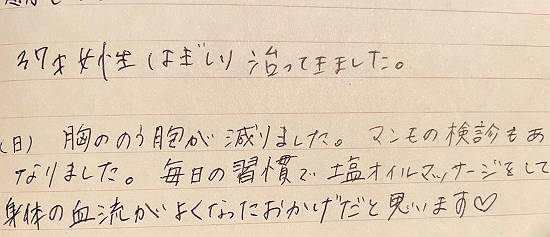 37才女性 はぎしり 治ってきました。
(日) 胸ののう胞が減りました。マンモの検診もあ
なりました。毎日の習慣で塩オイルマッサージをして
身体の血流がよくなったおかげだと思います♡